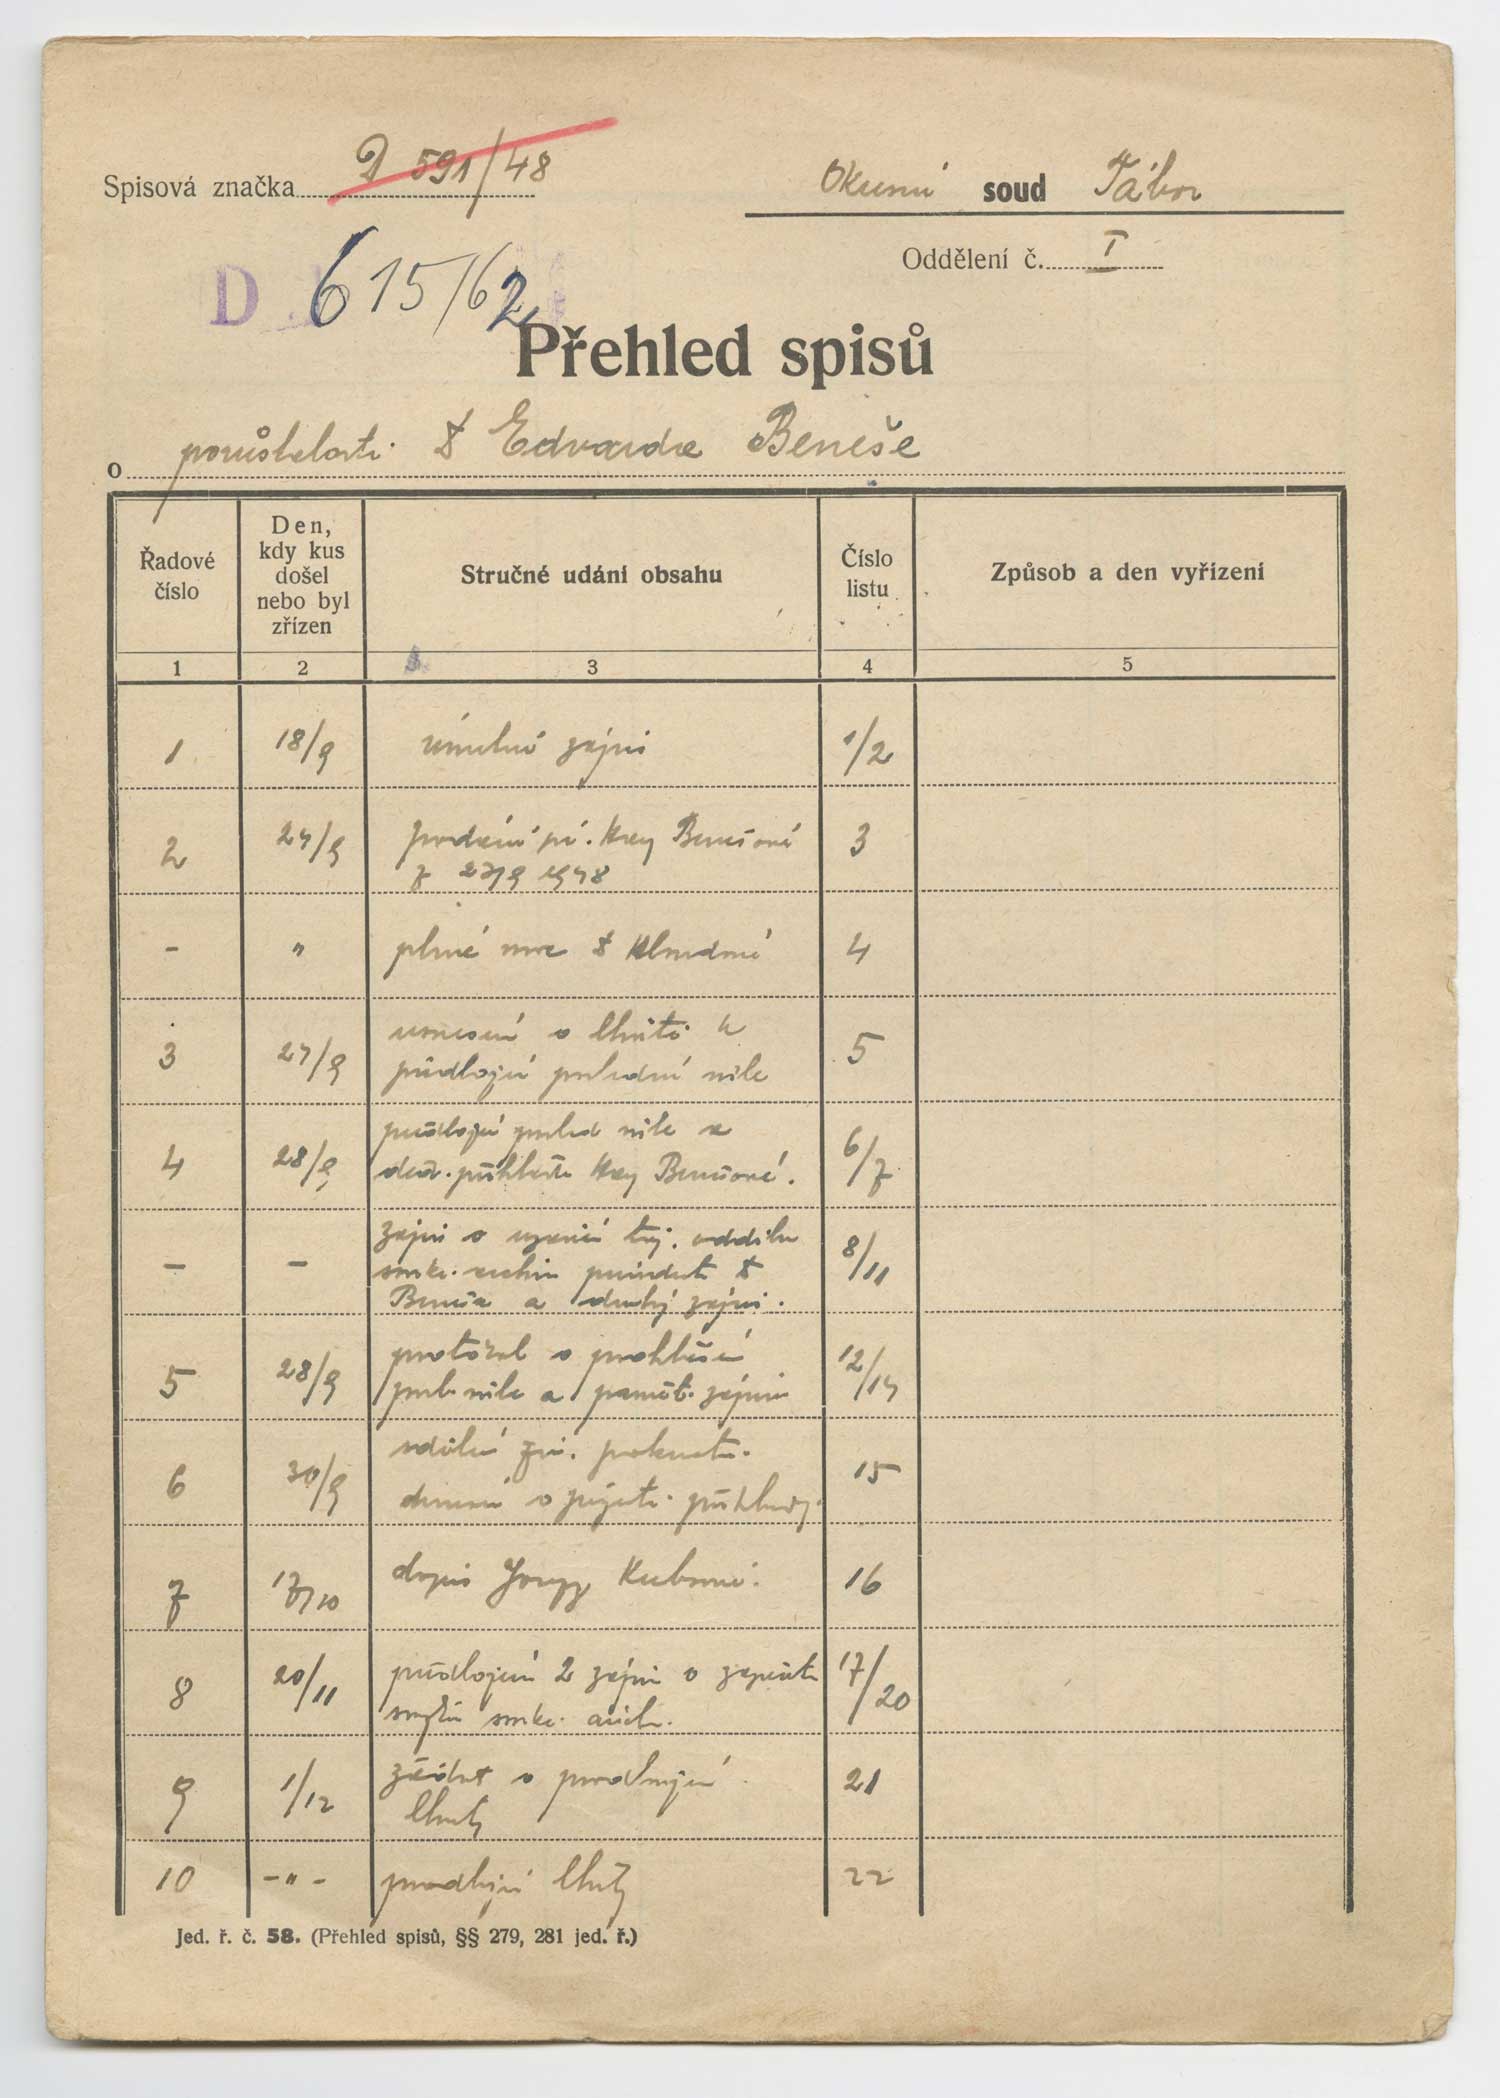 Spisová značka D 591/48
Okresní soud Tábor
Oddělení č. I
D 615/62
Přehled spisů
o pozůstalosti Dr Edvarda Beneše
Řadové číslo
Den, kdy kus došel nebo byl zřízen
Stručné udání obsahu
Číslo listu
Způsob a den vyřízení
1 2 3 4 5
1 18/9 úmrtní zápis 1/2
2 27/9 podání pí. Hany Benešové 3
z 27/9 1948
- " plná moc Dr 4
3 27/9 usnesení o lhůtě k 5
předložení poslední vůle
4 28/9 předložení posled vůle a 6/7
děd. přihlášky Hany Benešové.
- - zápis o oddílu 8/11
Beneše a druhý zápis.
5 28/9 protokol o prohlášení 12/14
posl. vůle a zápisu
6 30/9 sdělení 15
o přijetí přihlášky.
7 17/10 dopis 16
8 20/11 předložení 2 zápisů o 17/20
9 1/12 žádost o prodloužení 21
lhůty
10 -"- prodlouž. lhůty 22
Jed. ř. č. 58. (Přehled spisů, §§ 279, 281 jed. ř.)